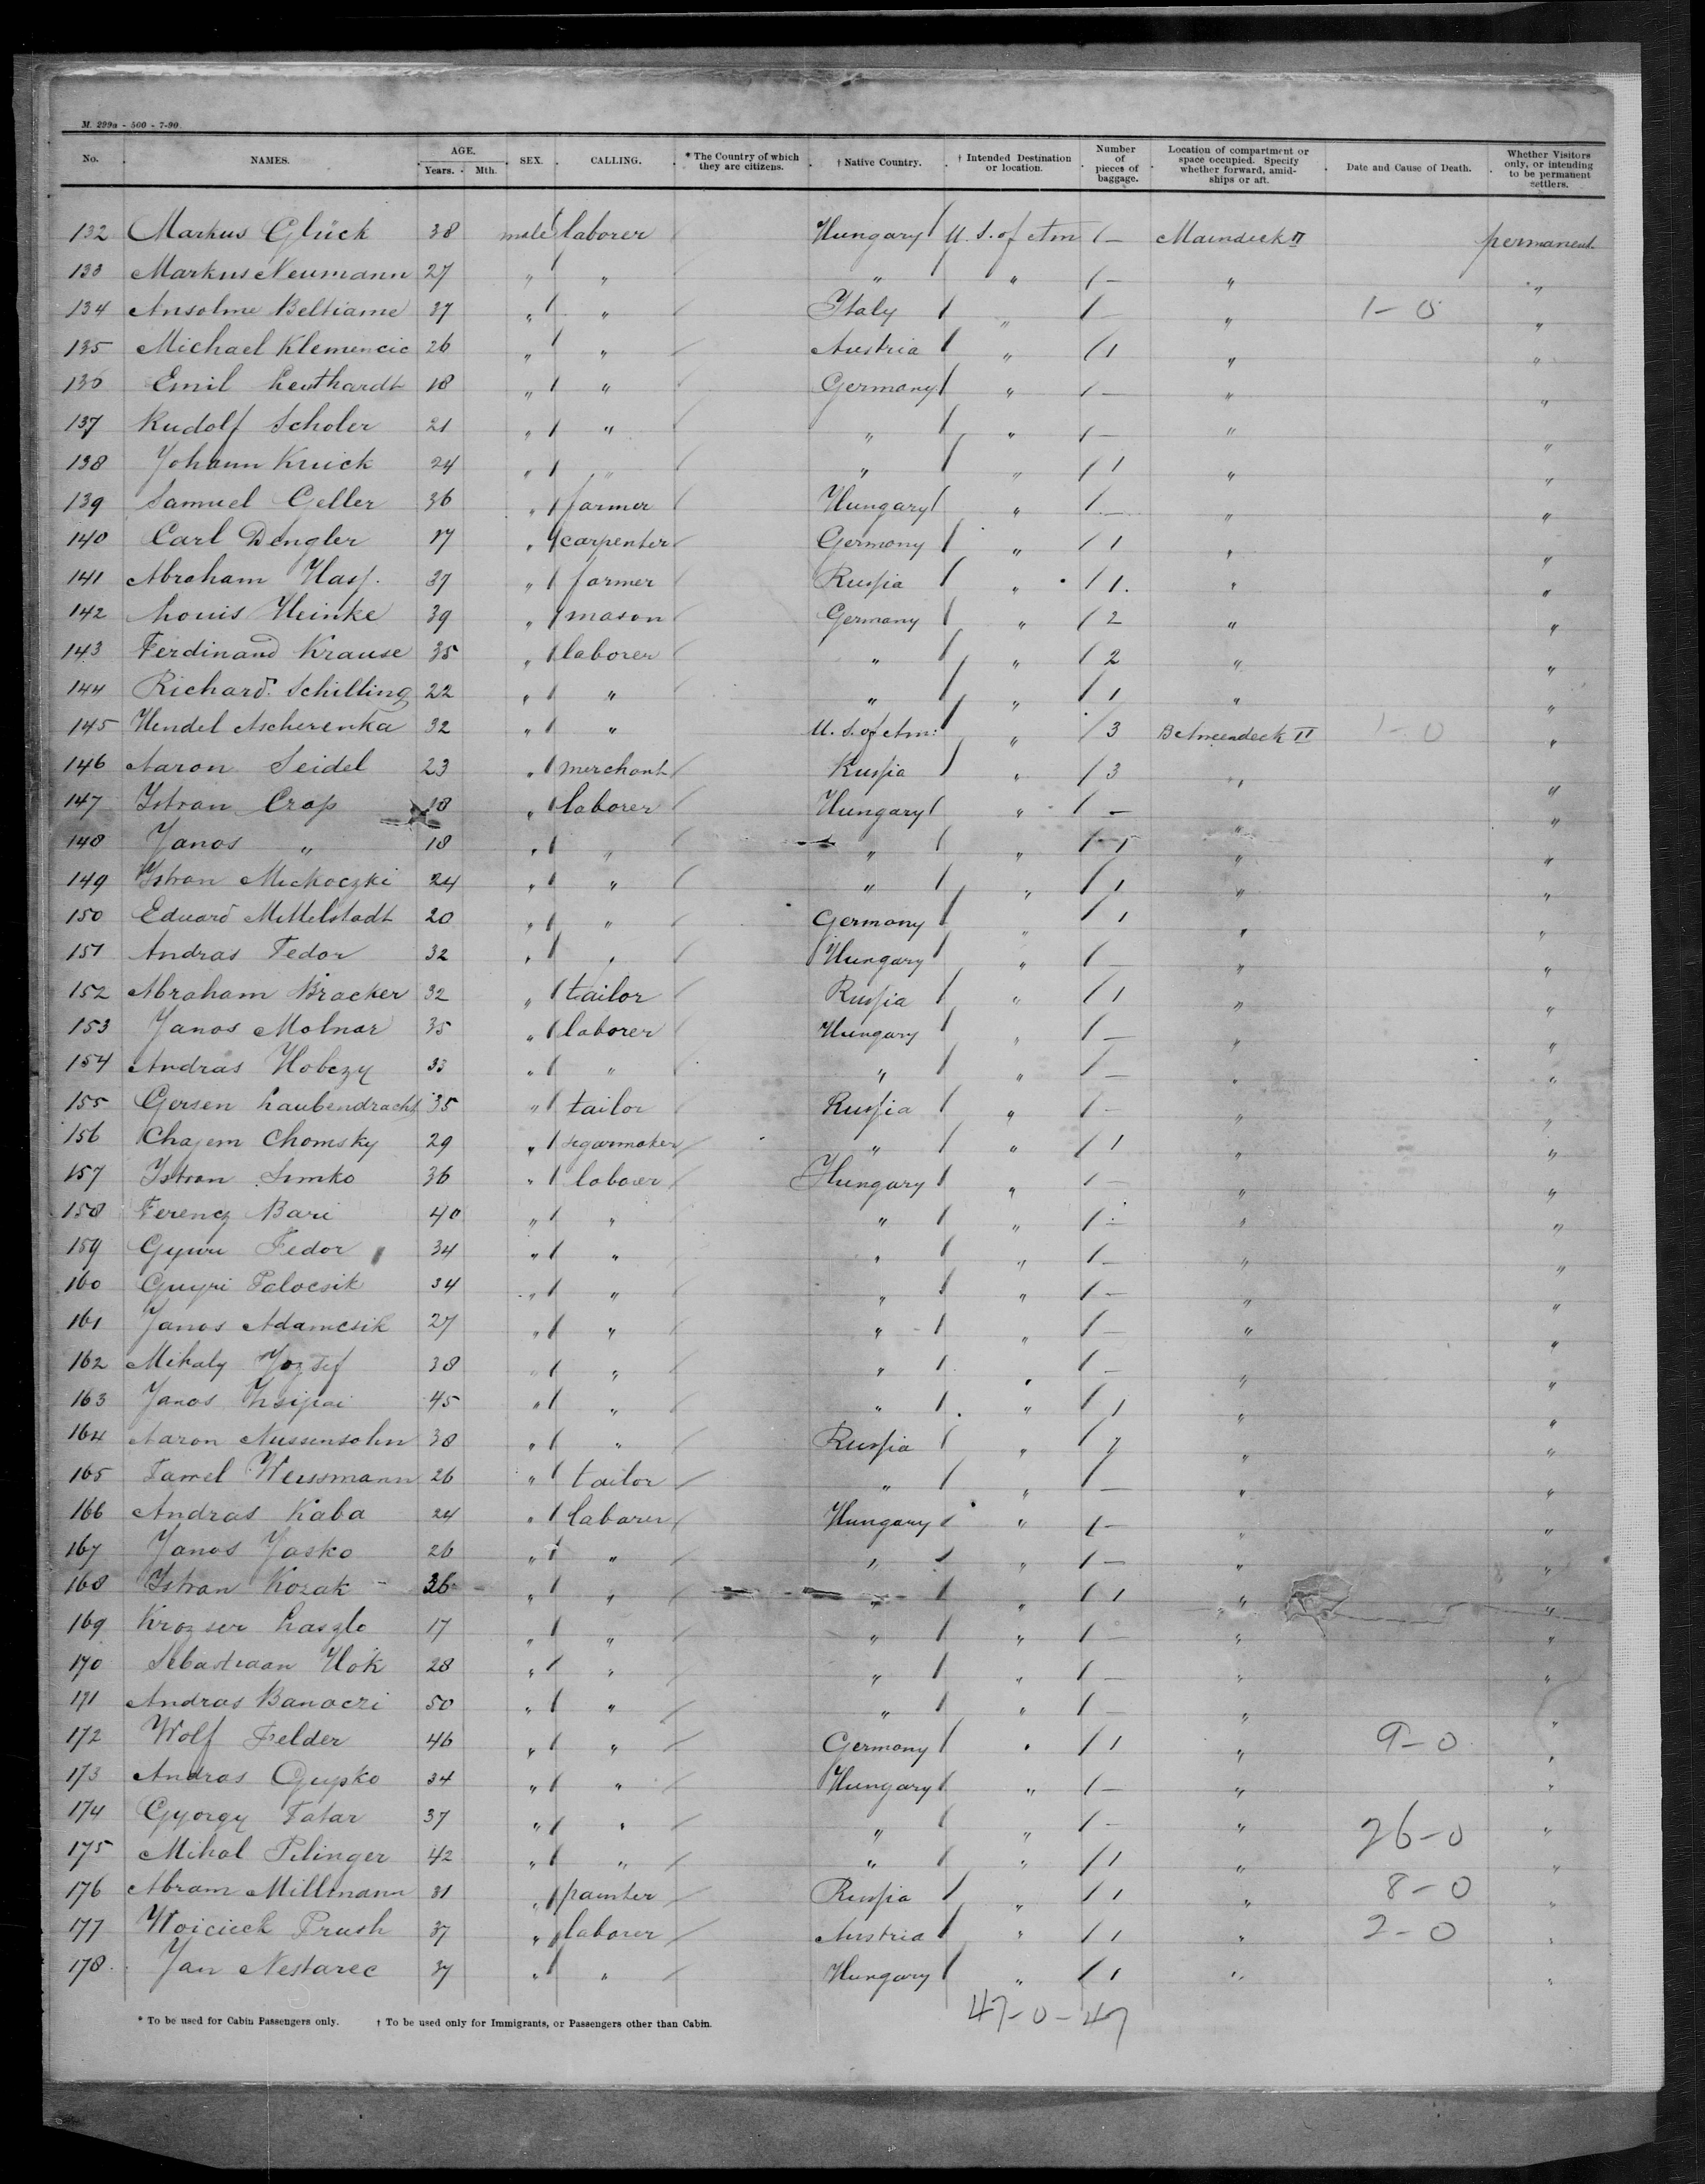 M. 299a - 500 - 7-90.
No. NAMES. AGE. Years. Mth. SEX. CALLING. * The Country of which they are citizens. † Native Country. † Intended Destination or location. Number of pieces of baggage. Location of compartment or space occupied. Specify whether forward, amidships or aft. Date and Cause of Death. Whether Visitors only, or intending to be permanent settlers.
132 Markus Glück 38 male laborer Hungary U. S. of Am — Maindeck II permanent
133 Markus Neumann 27 " " " " — " "
134 Ansolme Beltiame 37 " " Italy " — " 1-0 "
135 Michael Klemencic 26 " " Austria " 1 " "
136 Emil Leuthardt 18 " " Germany " — " "
137 Rudolf Scholer 21 " " " " — " "
138 Johann Kruick 24 " " " " 1 " "
139 Samuel Geller 36 " farmer Hungary " — " "
140 Carl Dengler 17 " carpenter Germany " 1 " "
141 Abraham Hasf. 37 " farmer Russia " 1. " "
142 Louis Heinke 39 " mason Germany " 2 " "
143 Ferdinand Krause 35 " laborer " " 2 " "
144 Richard Schilling 22 " " " " 1 " "
145 Hendel Ascherenka 32 " " U. S. of Am: " 3 Betweendeck II 1-0 "
146 Aaron Seidel 23 " merchant Russia " 3 " "
147 Istvan Crap 18 " laborer Hungary " — " "
148 Janos " 18 " " " " 1 " "
149 Istvan Mickoczki 24 " " " " 1 " "
150 Eduard Mittelstadt 20 " " Germany " 1 " "
151 Andras Fedor 32 " " Hungary " — " "
152 Abraham Bracker 32 " tailor Russia " 1 " "
153 Janos Molnar 35 " laborer Hungary " — " "
154 Andras Hobczy 33 " " " " — " "
155 Gersen Laubendracht 35 " tailor Russia " — " "
156 Chajem Chomsky 29 " segarmaker " " 1 " "
157 Istvan Simko 36 " laborer Hungary " — " "
158 Ferencz Bari 40 " " " " — " "
159 Gyuri Fedor 34 " " " " — " "
160 Guyri Palocsik 34 " " " " — " "
161 Janos Adamcsik 27 " " " " — " "
162 Mihaly Jozsef 38 " " " " — " "
163 Janos 45 " " " " 1 " "
164 Aaron Nussensohn 38 " " Russia " " "
165 Weissmann 26 " tailor " " — " "
166 Andras Kaba 24 " laborer Hungary " — " "
167 Janos Jasko 26 " " " " — " "
168 Istvan Kozak 36 " " " " 1 " "
169 Laszlo 17 " " " " — " "
170 Sebastiaan Hök 28 " " " " — " "
171 Andras Banoczi 50 " " " " — " "
172 Wolf Felder 46 " " Germany " 1 " 9-0 "
173 Andras Gupko 34 " " Hungary " — " "
174 Gyorgy Tatar 37 " " " " — " 26-0 "
175 Mihal Pilinger 42 " " " " 1 " "
176 Abram Millmann 31 " painter Russia " 1 " 8-0 "
177 Woicieck Prush 37 " laborer Austria " 1 " 2-0 "
178 Jan Nestarec 37 " " Hungary " 1 " "
47-0-47
* To be used for Cabin Passengers only. † To be used only for Immigrants, or Passengers other than Cabin.